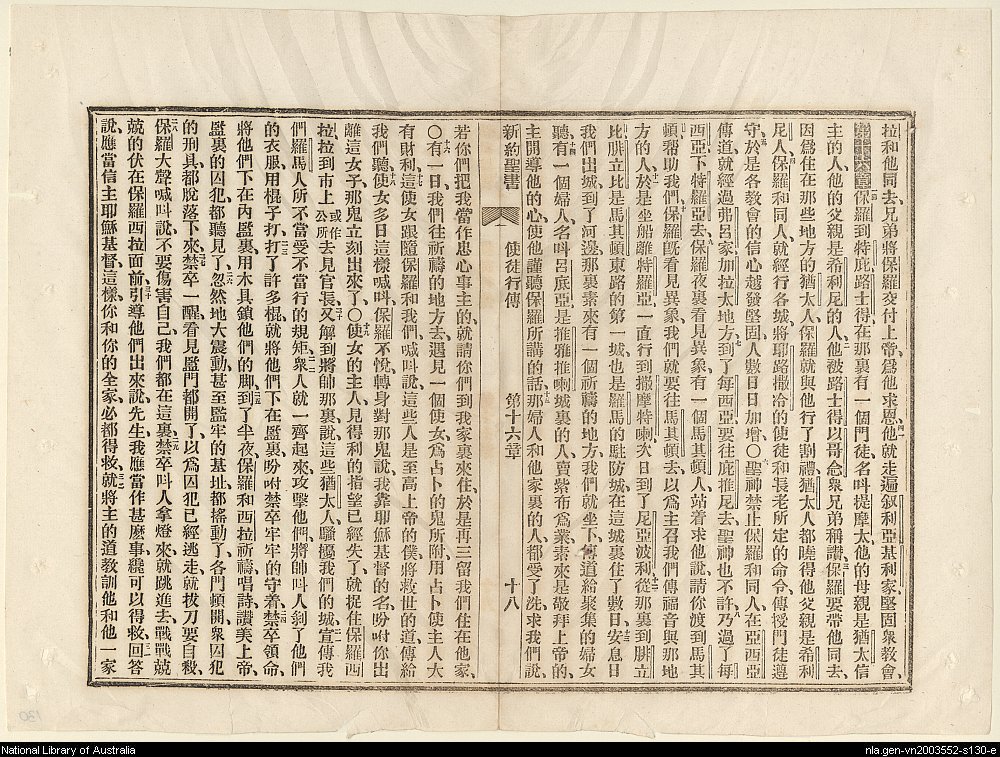 拉和他同去、兄弟將保羅交付上帝、爲他求恩、他就走遍叙利亞基利家、堅固衆教會、
第十六章 保羅到特庇路士得、在那裏有一個門徒名叫提摩太、他的母親是猶太信
主的人、他的父親是希利尼的人、他被路士得以哥念衆兄弟稱讚、保羅要帶他同去、
因爲住在那些地方的猶太人、保羅就與他行了割禮、猶太人都曉得他父親是希利
尼人、保羅和同人就經行各城、將耶路撒冷的使徒和長老所定的命令傳授門徒遵
守、於是各教會的信心越發堅固、人數日日加增、○聖神禁止保羅和同人在亞西亞
傳道、就經過弗呂家加拉太地方、到了每西亞、要往庇推尼去、聖神也不許、乃過了每
西亞、下特羅亞去、保羅夜裏看見異象、有一個馬其頓人站着求他說、請你渡到馬其
頓、帮助我們、保羅旣看見異象、我們就要往馬其頓去、以爲主召我們傳福音與那地
方的人、於是坐船離特羅亞、一直行到撒摩特喇、次日到了尼亞波利、從那裏到腓立
比、腓立比是馬其頓東路的第一城、也是羅馬的駐防城、在這城裏住了數日、安息日
我們出城到了河邊、那裏素來有一個祈禱的地方、我們就坐下、傳道給聚集的婦女
聽、有一個婦人名叫呂底亞、是推雅推喇城裏的人、賣紫布爲業、素來是敬拜上帝的、
主開導他的心、使他謹聽保羅所講的話、那婦人和他家裏的人都受了洗、求我們說、
新約聖書 使徒行傳 第十六章 十八
若你們把我當作忠心事主的、就請你們到我家裏來住、於是再三留我們住在他家、
○有一日、我們往祈禱的地方去、遇見一個使女、爲占卜的鬼所附、用占卜使主人大
有財利、這使女跟隨保羅和我們、喊叫說、這些人是至高上帝的僕、將救世的道傳給
我們聽、使女多日這樣喊叫、保羅不悅、轉身對那鬼說、我靠耶穌基督的名、吩咐你出
離這女子、那鬼立刻出來了、○使女的主人見得利的指望已經失了、就捉住保羅西
拉、拉到市上 或作公所 去見官長、又解到將帥那裏說、這些猶太人騷擾我們的城、宣傳我
們羅馬人所不當受不當行的規矩、衆人就一齊起來攻擊他們、將帥叫人剝了他們
的衣服、用棍子打、打了許多棍、就將他們下在監裏、吩咐禁卒牢牢的守着、禁卒領命、
將他們下在內監裏、用木具鎖他們的脚、到了半夜、保羅和西拉祈禱唱詩讚美上帝、
監裏的囚犯都聽見了、忽然地大震動、甚至監牢的基址都搖動了、各門頓開、衆囚犯
的刑具都脫落下來、禁卒一醒、看見監門都開了、以爲囚犯已經逃走、就拔刀要自殺、
保羅大聲喊叫說、不要傷害自己、我們都在這裏、禁卒叫人拿燈來、就跳進去、戰戰兢
兢的伏在保羅西拉面前、引導他們出來、說、先生、我應當作甚麽事、纔可以得救、回答
說、應當信主耶穌基督、這樣、你和你的全家必都得救、就將主的道教訓他和他一家
130
National Library of Australia
nla.gen-vn2003552-s130-e